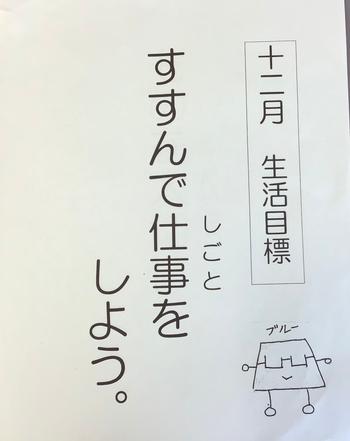 十二月　生活目標
すすんで仕事を
しごと
しよう。
ブルー